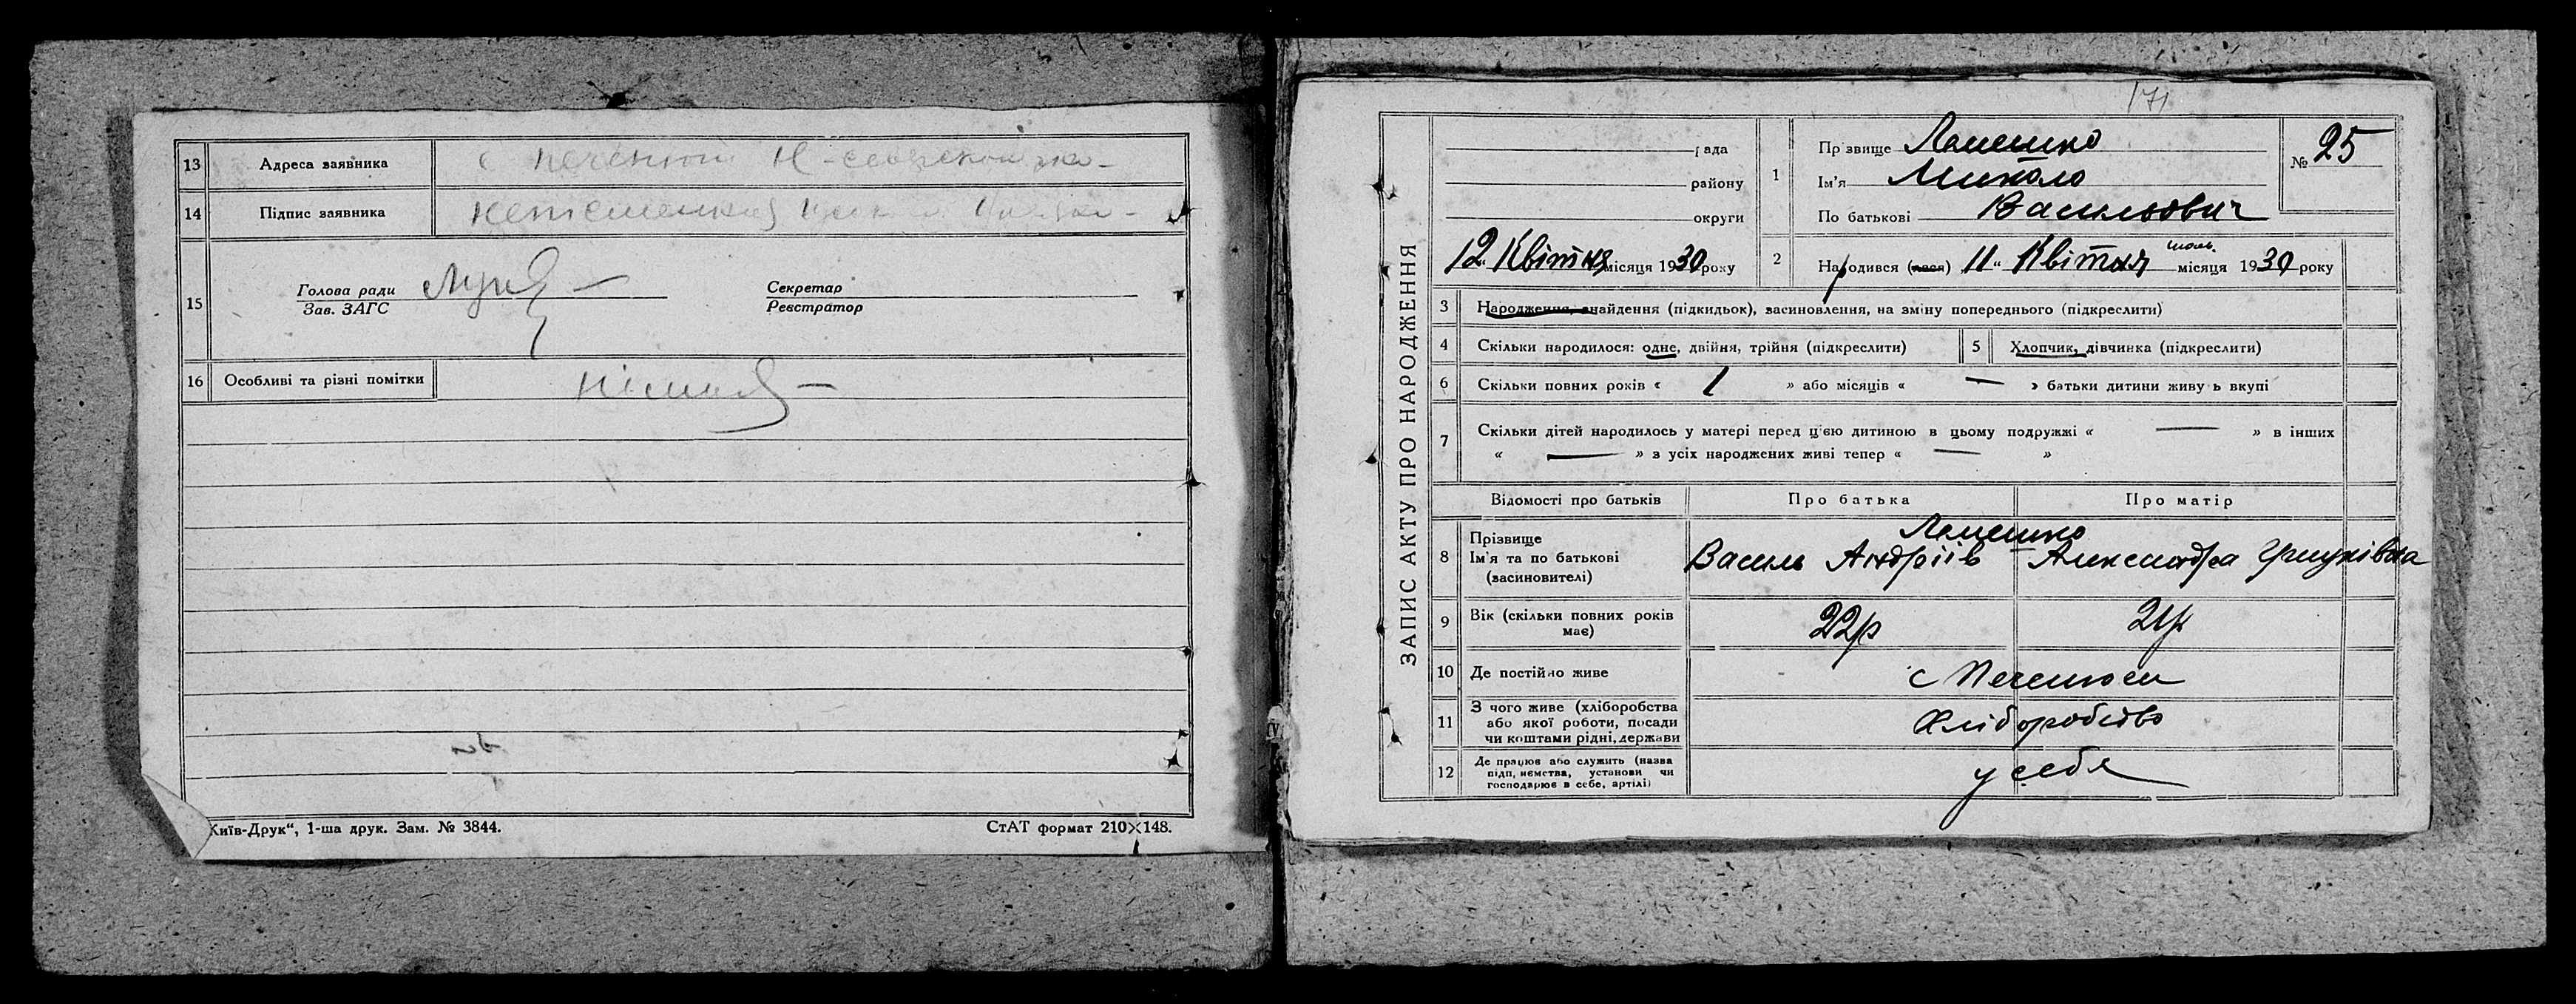 13 Адреса заявника с Печенюги Н-Северского
14 Підпис заявника
15 Голова ради
Зав. ЗАГС
Секретар
Реєстратор
16 Особливі та різні помітки
Київ-Друк“, 1-ша друк. Зам. № 3844.
СтАТ формат 210×148.
171
ЗАПИС АКТУ ПРО НАРОДЖЕННЯ
рада
району
округи
12 Квітня місяця 1930 року
1 Прізвище Лемешко
Ім'я Микола
По батькові Васильович
№ 25
2 Народився (лася) 11 “ Квітня місяця 1930 року
3 Народження, знайдення (підкидьок), засиновлення, на зміну попереднього (підкреслити)
4 Скільки народилося: одне, двійня, трійня (підкреслити)
5 Хлопчик, дівчинка (підкреслити)
6 Скільки повних років « 1 » або місяців « — » батьки дитини живуть вкупі
7 Скільки дітей народилось у матері перед цією дитиною в цьому подружжі « — » в інших
« — » з усіх народжених живі тепер « — »
Відомості про батьків Про батька Про матір
8 Прізвище Лемешко
Ім'я та по батькові Василь Андріїв Александра
(засиновителі)
9 Вік (скільки повних років 22р 21р
має)
10 Де постійно живе с Печенюги
11 З чого живе (хліборобства
або якої роботи, посади Хліборобство
чи коштами рідні, держави
12 Де працює або служить (назва
підприємства, установи чи у себя
господарює в себе, артілі)